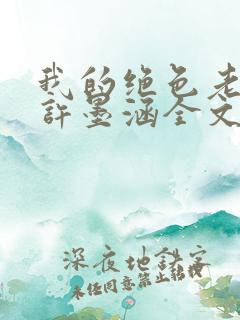 我的绝色老
許墨涵全文
深夜地鉄客
未经同意禁止转载